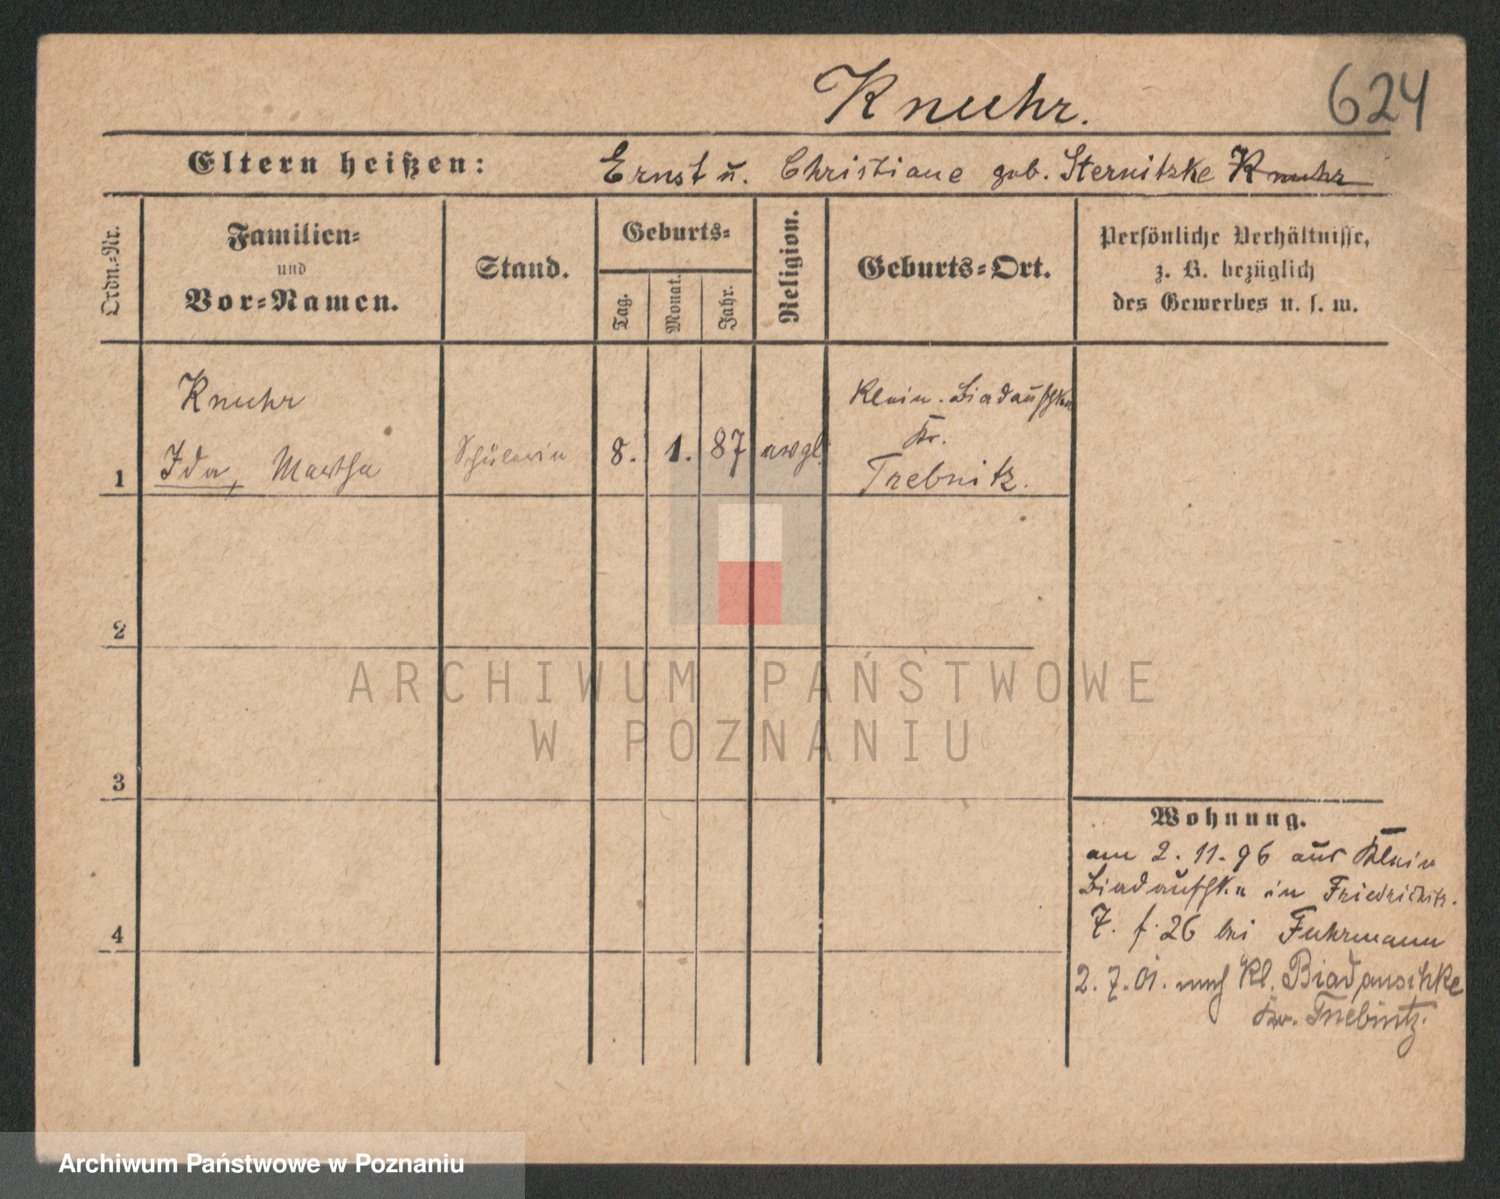 Knuhr.
624
Eltern heißen: Ernst u. Christiane geb. Sternitzke Knuhr
Ordn.-Nr.
Familien-
und
Vor-Namen.
Stand.
Geburts-
Tag.
Monat.
Jahr.
Religion.
Geburts-Ort.
Persönliche Verhältnisse,
z. B. bezüglich
des Gewerbes u. s. w.
Knuhr
1 Ida, Martha
Schülerin
8. 1. 87
evgl.
Klein. Biadauschke
Kr.
Trebnitz.
2
3
4
Wohnung.
am 2. 11. 96 aus Klein
Biadauschke in Friedrichstr.
7. f. 26 bei Fuhrmann
2. 7. 01. nach Kl. Biadauschke
Kr. Trebnitz.
ARCHIWUM PAŃSTWOWE
W POZNANIU
Archiwum Państwowe w Poznaniu